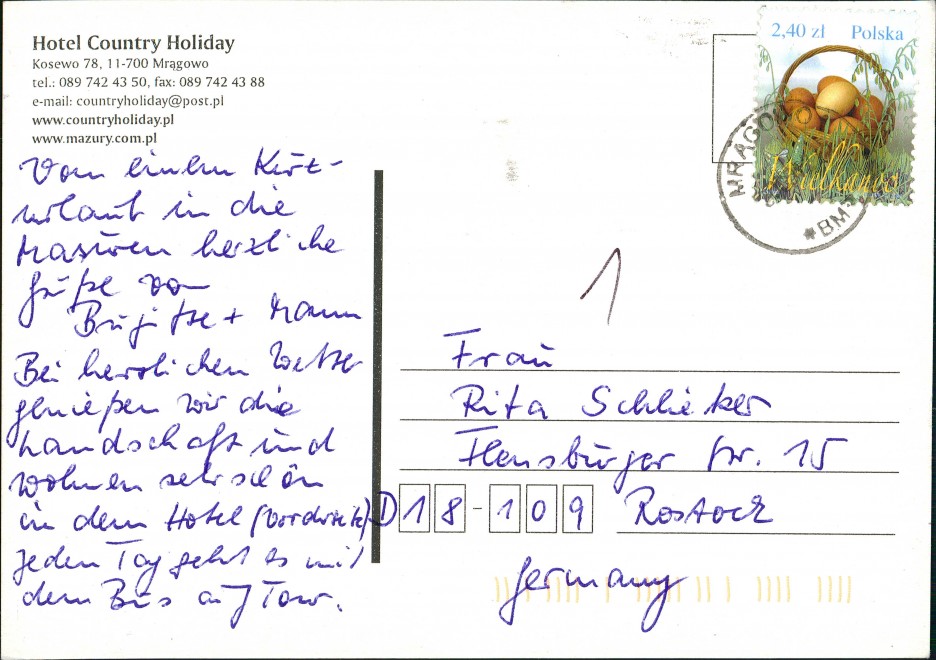 Hotel Country Holiday
Kosewo 78, 11-700 Mrągowo
tel.: 089 742 43 50, fax: 089 742 43 88
e-mail: countryholiday@post.pl
www.countryholiday.pl
www.mazury.com.pl
Von einem Kurz-
urlaub in die
Masuren herzliche
Grüße von
Brigitte + Mann
Bei herrlichem Wetter
genießen wir die
Landschaft und
wohnen sehr schön
in dem Hotel (Vorderseite)
Jeden Tag geht es mit
dem Bus auf Tour.
2,40 zł Polska
Wielkanoc
MRĄGOWO
*BM*
1
Frau
Rita Schlieker
Flensburger Str. 15
D 18-109 Rostock
Germany